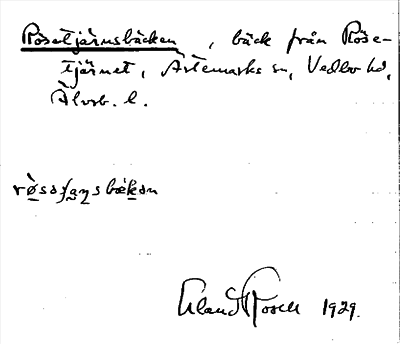 Rösetjärnsbäcken, bäck från Röse-
tjärnet, Ärtemarks sn, Vedbo hd,
Älvsb. l.
røsəʃæɳsbækən
Erland Rosell 1929.